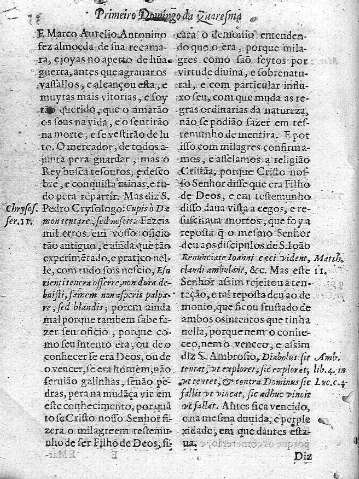 Primeiro Domingo da Quaresma
E Marco Aurelio Antonino
fez almoeda de sua recama
ra, e joyas no aperto de hũa
guerra, antes que agravar os
vassallos, e alcançou esta, e
muytas mais vitorias, e foy
tão querido, que o amarão
os seus na vida, e o sentirão
na morte, e se vestirão de lu
to. O mercador, de todos a-
junta pera guardar, mas o
Rey busca tesouros, e desco
bre, e conquista minas, e tu-
do pera repartir. Mas diz S.
Pedro Crysologo: Cupit Dæ
mon tentare, sed
mil erros em vosso officio
tão antiguo, e ainda que tão
experimentado, e pratico nel-
le, com tudo sois nescio,
por cem ainda
mal porque tambem sabe fa-
zer seu officio, porque co-
mo seu intento era, ou de co-
nhecer se era Deos, ou de
o vencer, se era homem, não
servião galinhas, senão pe-
dras, pera na mudãça vir em
este conhecimento, porquã
to se Cristo nosso Senhor fi-
zera o milagre em testemu-
nho de ser Filho de Deos, fi-
Chrysos.
ser. 11.
cara o demonio entenden-
do que o era, porque mila-
gres como são feytos por
virtude divina, e sobrenatu-
ral, e com particular influ-
xo seu, com que muda as re-
gras ordinarias da natureza,
não se podião fazer em tes-
temunho de mentira. E por
isso com milagres confirma-
mos, e asselamos a religião
Cristãa, porque Cristo nos-
so Senhor disse que era Filho
de Deos, e em testemunho
disso dava vista a cegos, e re-
suscitava mortos, que foy a
reposta que o mesmo Senhor
deu aos discipulos de S. João
Renuntiate Ioanni cæci vident,
claudi ambulant, &c. Mas este
Senhor assim rejeitou a ten-
tação, e tal reposta deu ao de-
monio, que ficou frustado de
ambos os intentos que tinha
nella, porque nem o conhe-
ceo, nem o venceo, e assim
diz S. Ambrosio, Diabolus sic
tentat, ut exploret, sic explorat,
ut tentet, & contra Dominus sic
fallit ut vincat, sic adhuc vincit
ut fallat. Antes fica vencido,
e na mesma duvida, e perple
xidade, em que dantes esta-
va.
Matth.
11.
Ambr.
lib. 4. in
Luc. c. 4.
Diz